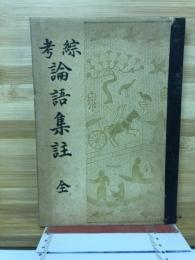 綜考
論語集註 全